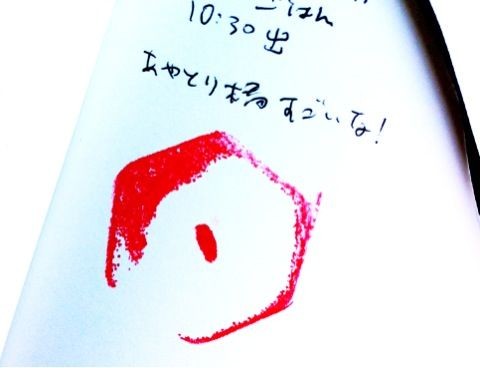 ごはん
10:30 出
あやとり すごいな!